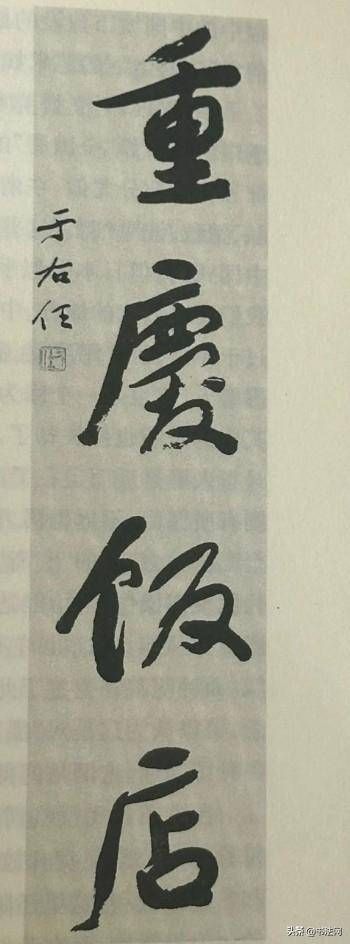 重慶饭店
于右任
头条@书法网